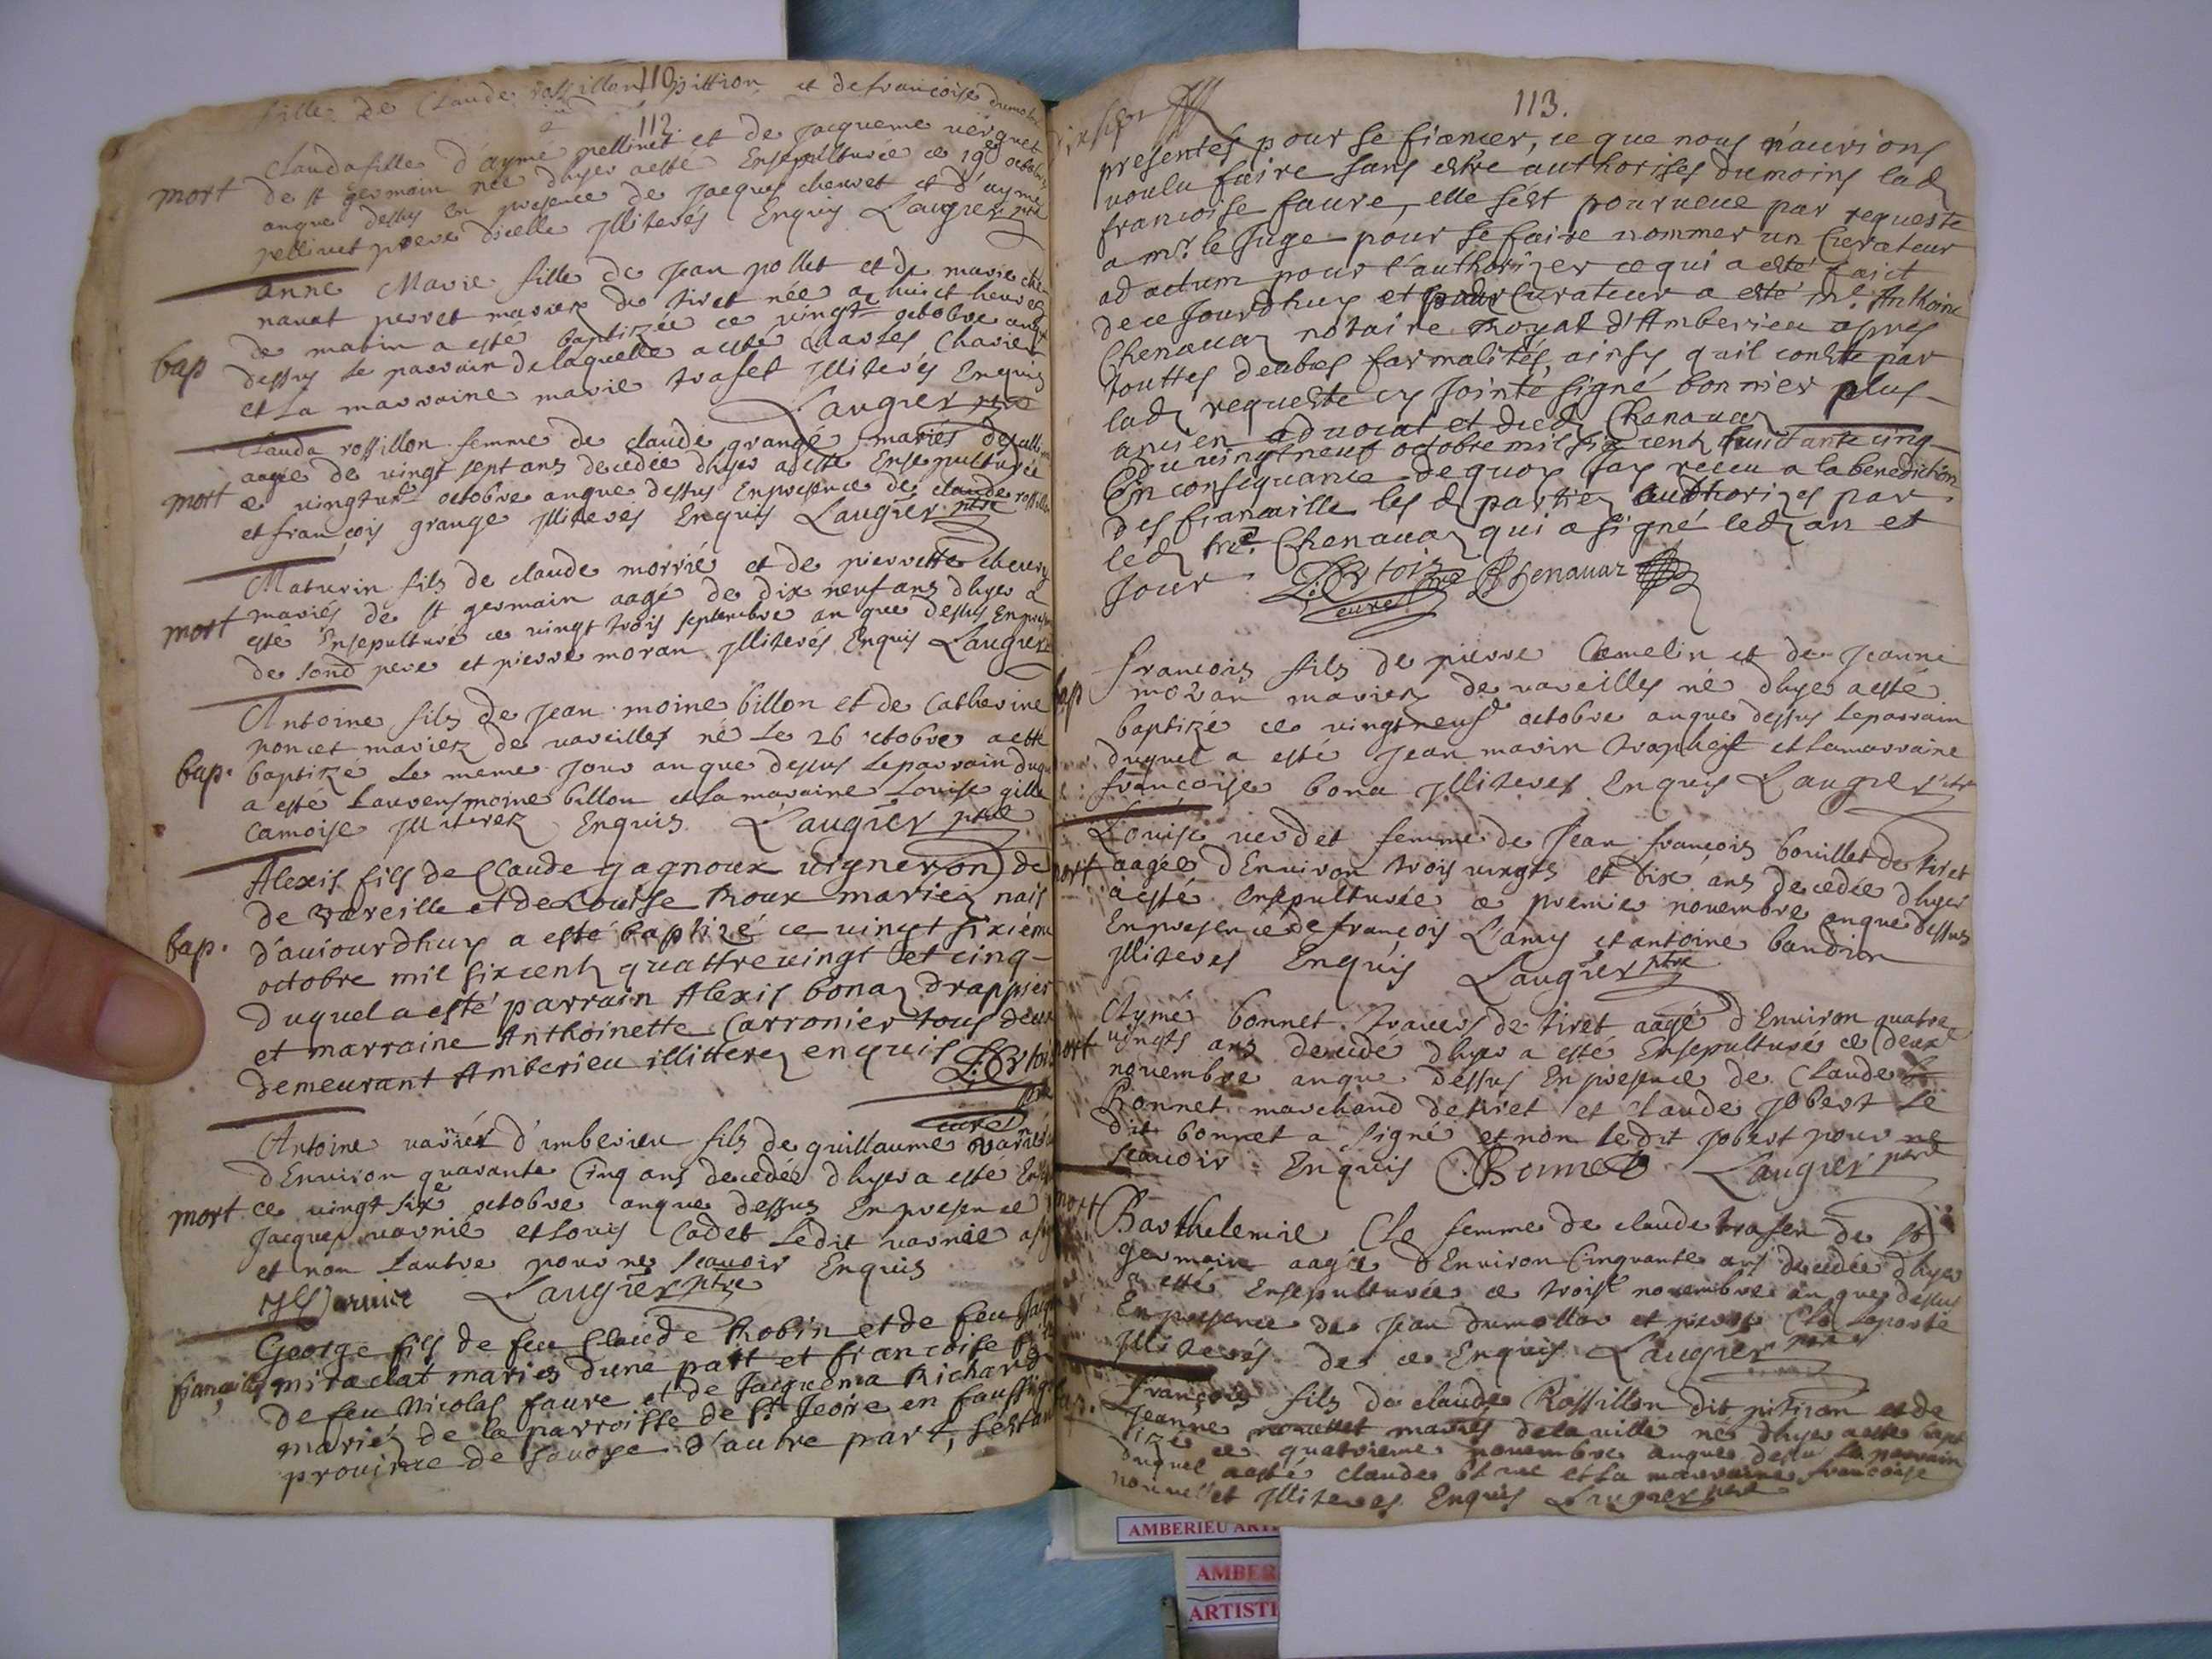 110
fille de Claude rossillon pittion et de francoise dumolar
112
Clauda fille d'aymé pellinet et de jacqueme verquet
mort de st germain née dhyer aesté Ensepulturée ce 19e octobre
anque dessus En presence de jacques cheuret et d'ayme
pellinet pere dicelle jlliterés Enquis Laugier ptre
anne Marie fille de jean pollet et de marie che
navat perret mariez de tiret née a huict heures
bap de matin a esté baptizée ce vingt octobre anque
dessus Le parrain delaquelle aesté charles Charier
et La marraine marie trafet jlliterés Enquis
Laugier ptre
Clauda rossillon femme de claude grangé mariés
aagée de vingt sept ans decedée dhyer aesté Ensepulturée
mort ce vingt octobre anque dessus Enpresence de claude rossillon
et françois grange jlliterés Enquis Laugier ptre
Maturin fils de claude morrié et de pierrette cheury
mort mariés de st germain aagé de dix neuf ans dhyer a
esté Ensepulturé ce vingt trois septembre an que dessus En
de sond pere et pierre moran jlliterés Enquis Laugier
Antoine fils de jean moine billon et de Catherine
poncet mariez de vareilles né Le 26 octobre aesté
bap. baptizé Le meme jour anque dessus Leparrain duquel
a esté Laurens moine billon et La maraine Louise gille
Camoise jlliterez Enquis Laugier ptre
Alexis fils de Claude gagnoux vigneron de
de Vareille et de Louise Roux mariez nais
bap. d'aujourdhuy a esté baptizé ce vingt sixième
octobre mil sixcent quattrevingt et cinq
duquel a esté parrain Alexis bonaz drappier
et marraine Anthoinette Carronier tous deux
demeurant Amberieu illitterez enquis
curé
Antoine varnier d'imberieu fils de guillaume varnier
dEnviron quarante Cinq ans decedée dhyer a esté
mort ce vingt six octobre anque dessus Enpresence
jacques varnié et Louis Cadet Ledit varnié
et non Lautre pour ne scavoir Enquis
Laugier ptre
George fils de feu Claude Robin et de feu
fiançailles miraclat mariez dune part et francoise
de feu Nicolas faure et de Jacquema Richard
mariez de la parroisse de St Jeoire en faussigni
province de Savoye d'autre part, sestant
113.
presentés pour se fiancer, ce que nous n'aurions
voulu faire sans estre authorisés dumoins lad
francoise faure, elle sést pourveue par requeste
a mr le Juge pour se faire nommer un Curateur
ad actum pour l'authorizer ce qui a esté faict
dece Jourdhuy et pour Curateur a esté me. Anthoine
Chenavaz notaire Royal d'Amberieu apres
touttes deubes formalités, ainsy quil conste par
lad requeste cy Jointe signé bonnier plus
ancien advocat et dud Chenavaz
Du vingtneuf octobre mil six cent huictante cinq
En consequance dequoy Jay receu a la benediction
des fiancaille les d parties authorizes par
led me. Chenavaz qui a signé led an et
Jour. curé Chenavaz
françois fils de pierre Camelin et de Jeanne
bap moran mariez de vareilles né dhyer aesté
baptizé ce vingtneuf octobre anque dessus Leparrain
duquel a esté Jean marin et Lamarraine
françoise bona jlliteres Enquis Laugier ptre
Louise verdet femme de Jean françois bouillet de tiret
mort aagée dEnviron trois vingts et dix ans decedée dhyer
a esté ensepulturée ce premier novembre anque dessus
Enpresence de françois Lamy et antoine baudin
jlliteres Enquis Laugier ptre
Aymé bonnet de tiret aagé dEnviron quatre
mort vingts ans decedé dhyer a esté Ensepulturé ce deuxe
novembre anque dessus En presence de Claude
Bonnet marchand de tiret et Claude Jobert Le
dit bonnet a signé et non Ledit Jobert pour ne
scavoir Enquis CBonnet Laugier ptre
mort Barthelemie Clo femme de claude trafer de st
germain aagée dEnviron Cinquante ans decedée dhyer
a esté Ensepulturée ce trois novembre an que dessus
Enpresence de Jean dumollar et pierre Clo Laporte
jlliterés de ce Enquis Laugier ptre
bap. François fils de claude Rossillon dit pittion et de
Jeanne mariés delaville né dhyer aesté bapt
izé ce quatrieme novembre anque dessus Le parrain
duquel aesté claude et La marraine francoise
et jlliteres Enquis Laugier ptre
AMBERIEU ARTI
AMBER
ARTISTI